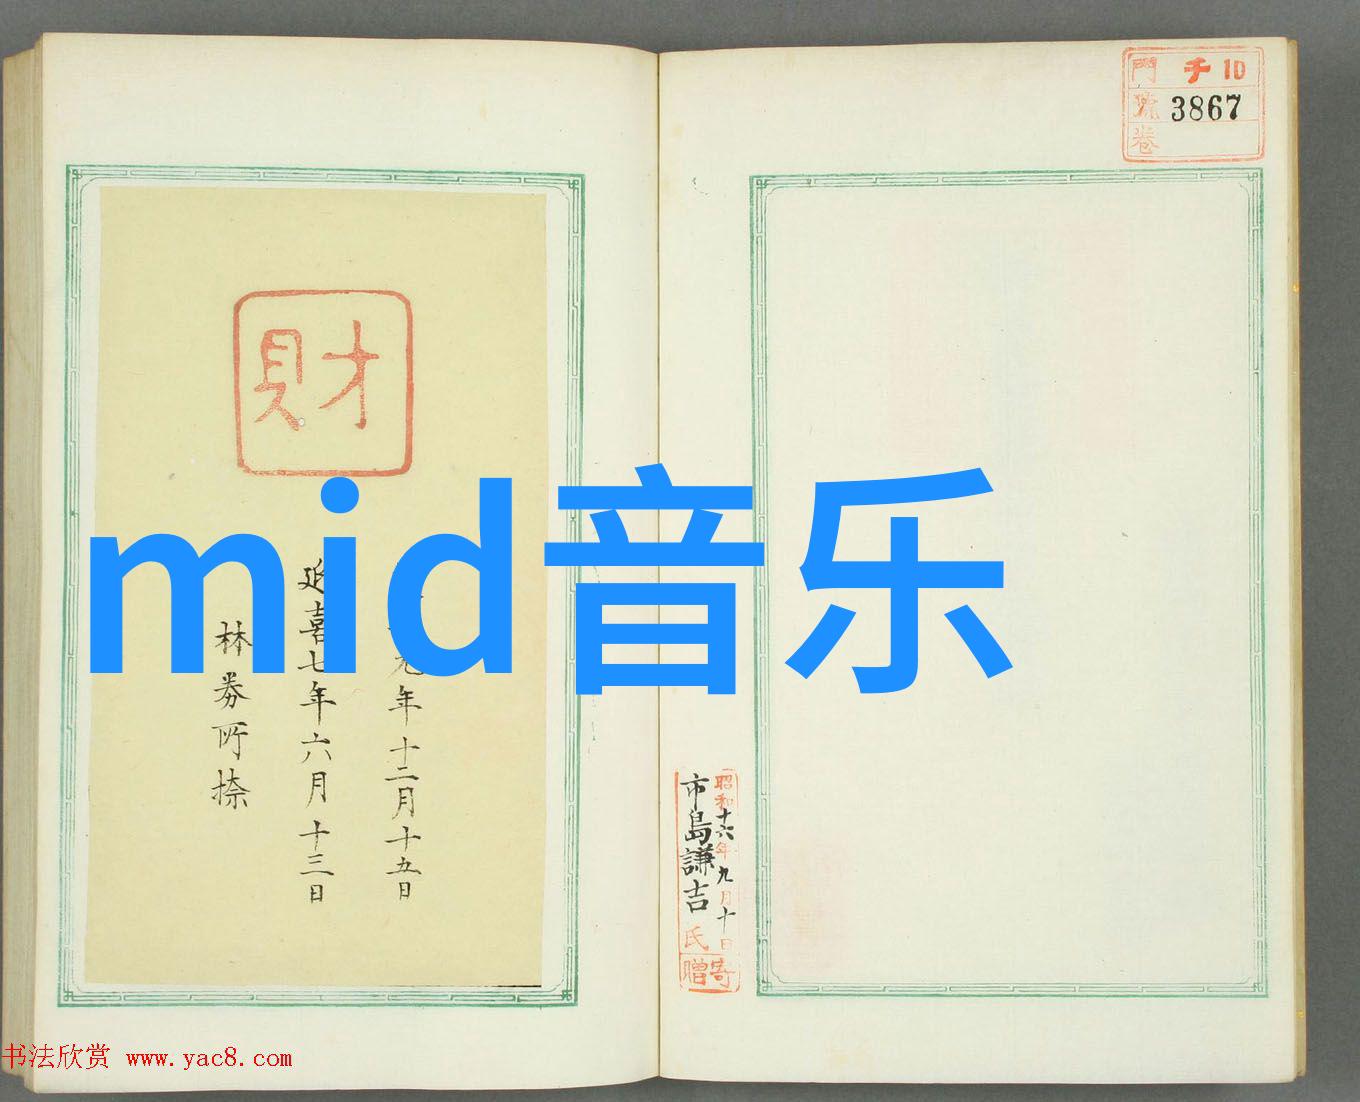 門 チ 10
號 3867
卷
昭和十六年九月十日
市島謙吉氏
寄贈
財
元年十二月十五日
延喜七年六月十三日
林券所捺
mid音乐
书法欣赏 www.yac8.com